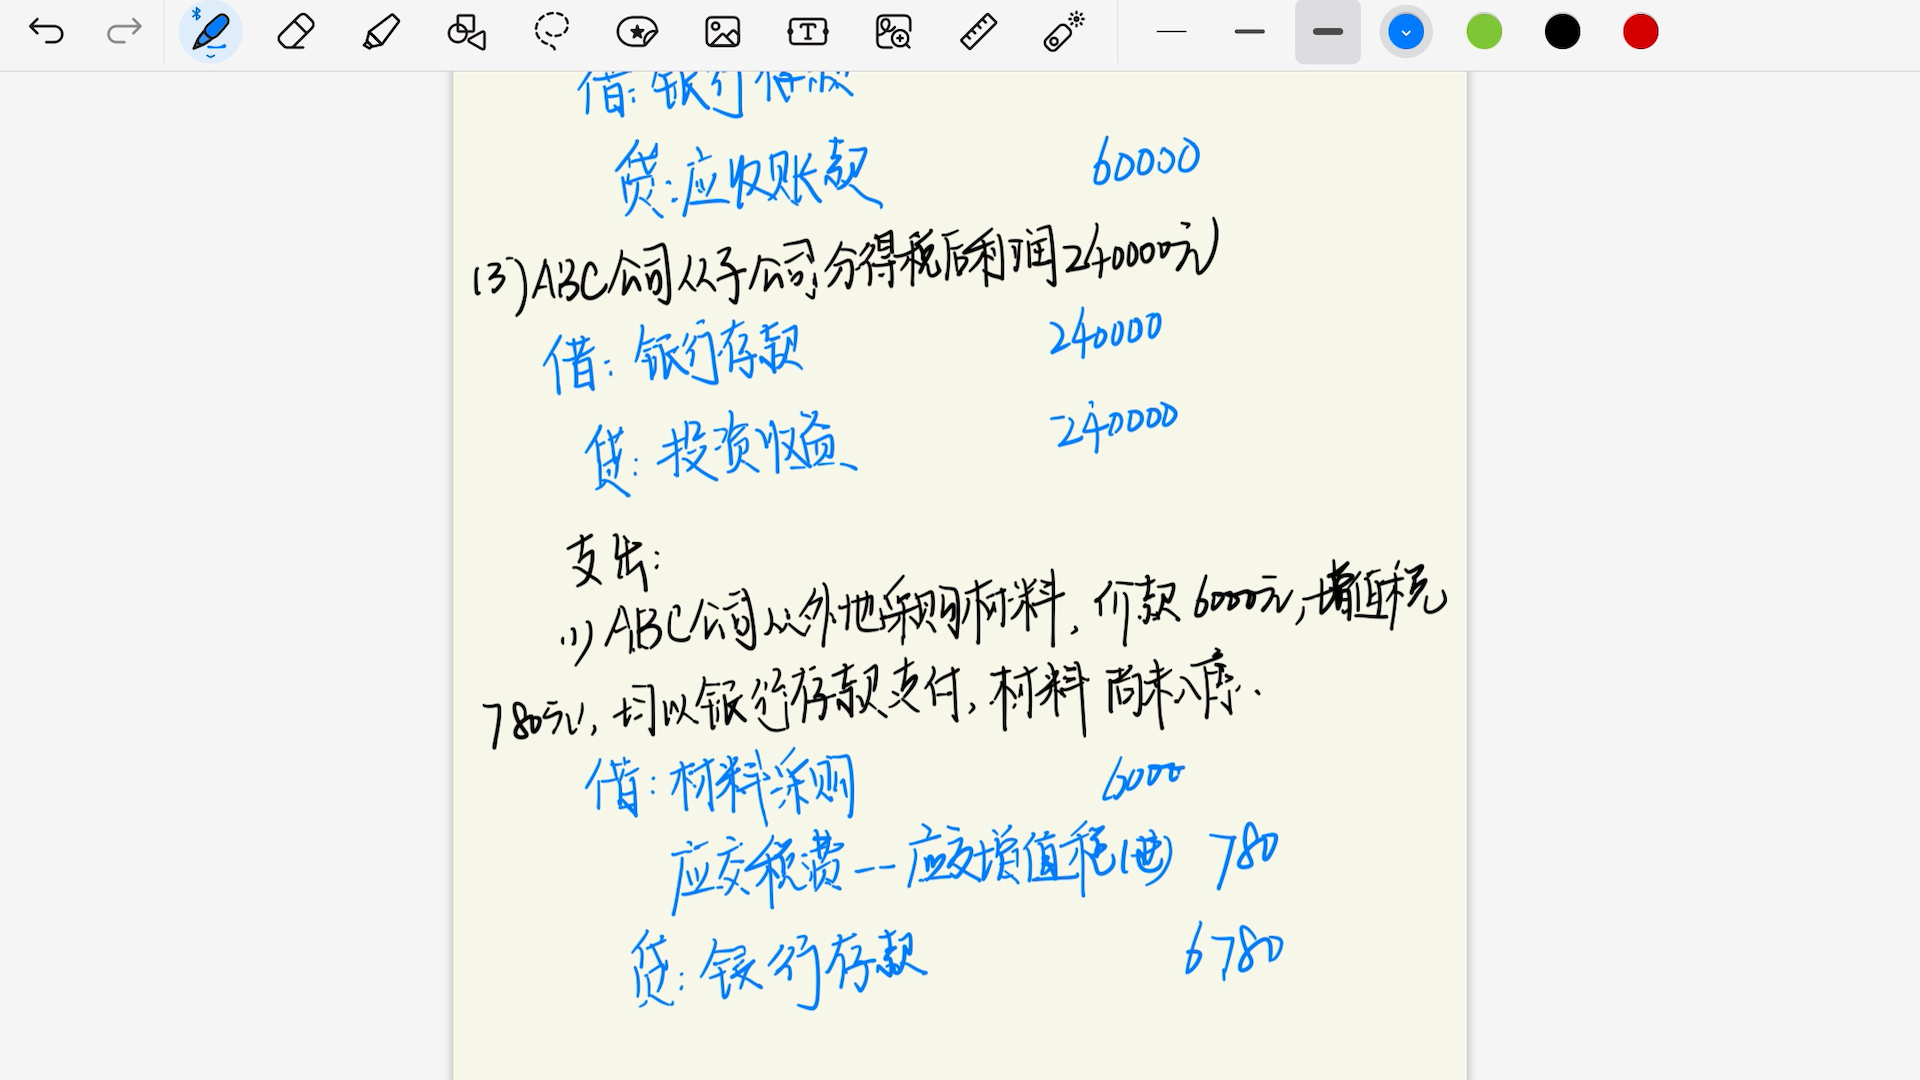 借:银行存款
贷:应收账款 60000
(3)ABC公司从子公司分得税后利润240000元
借:银行存款 240000
贷:投资收益 240000
支出:
(1)ABC公司从外地采购材料,价款6000元,增值税
780元,均以银行存款支付,材料尚未入库.
借:材料采购 6000
应交税费--应交增值税(进) 780
贷:银行存款 6780